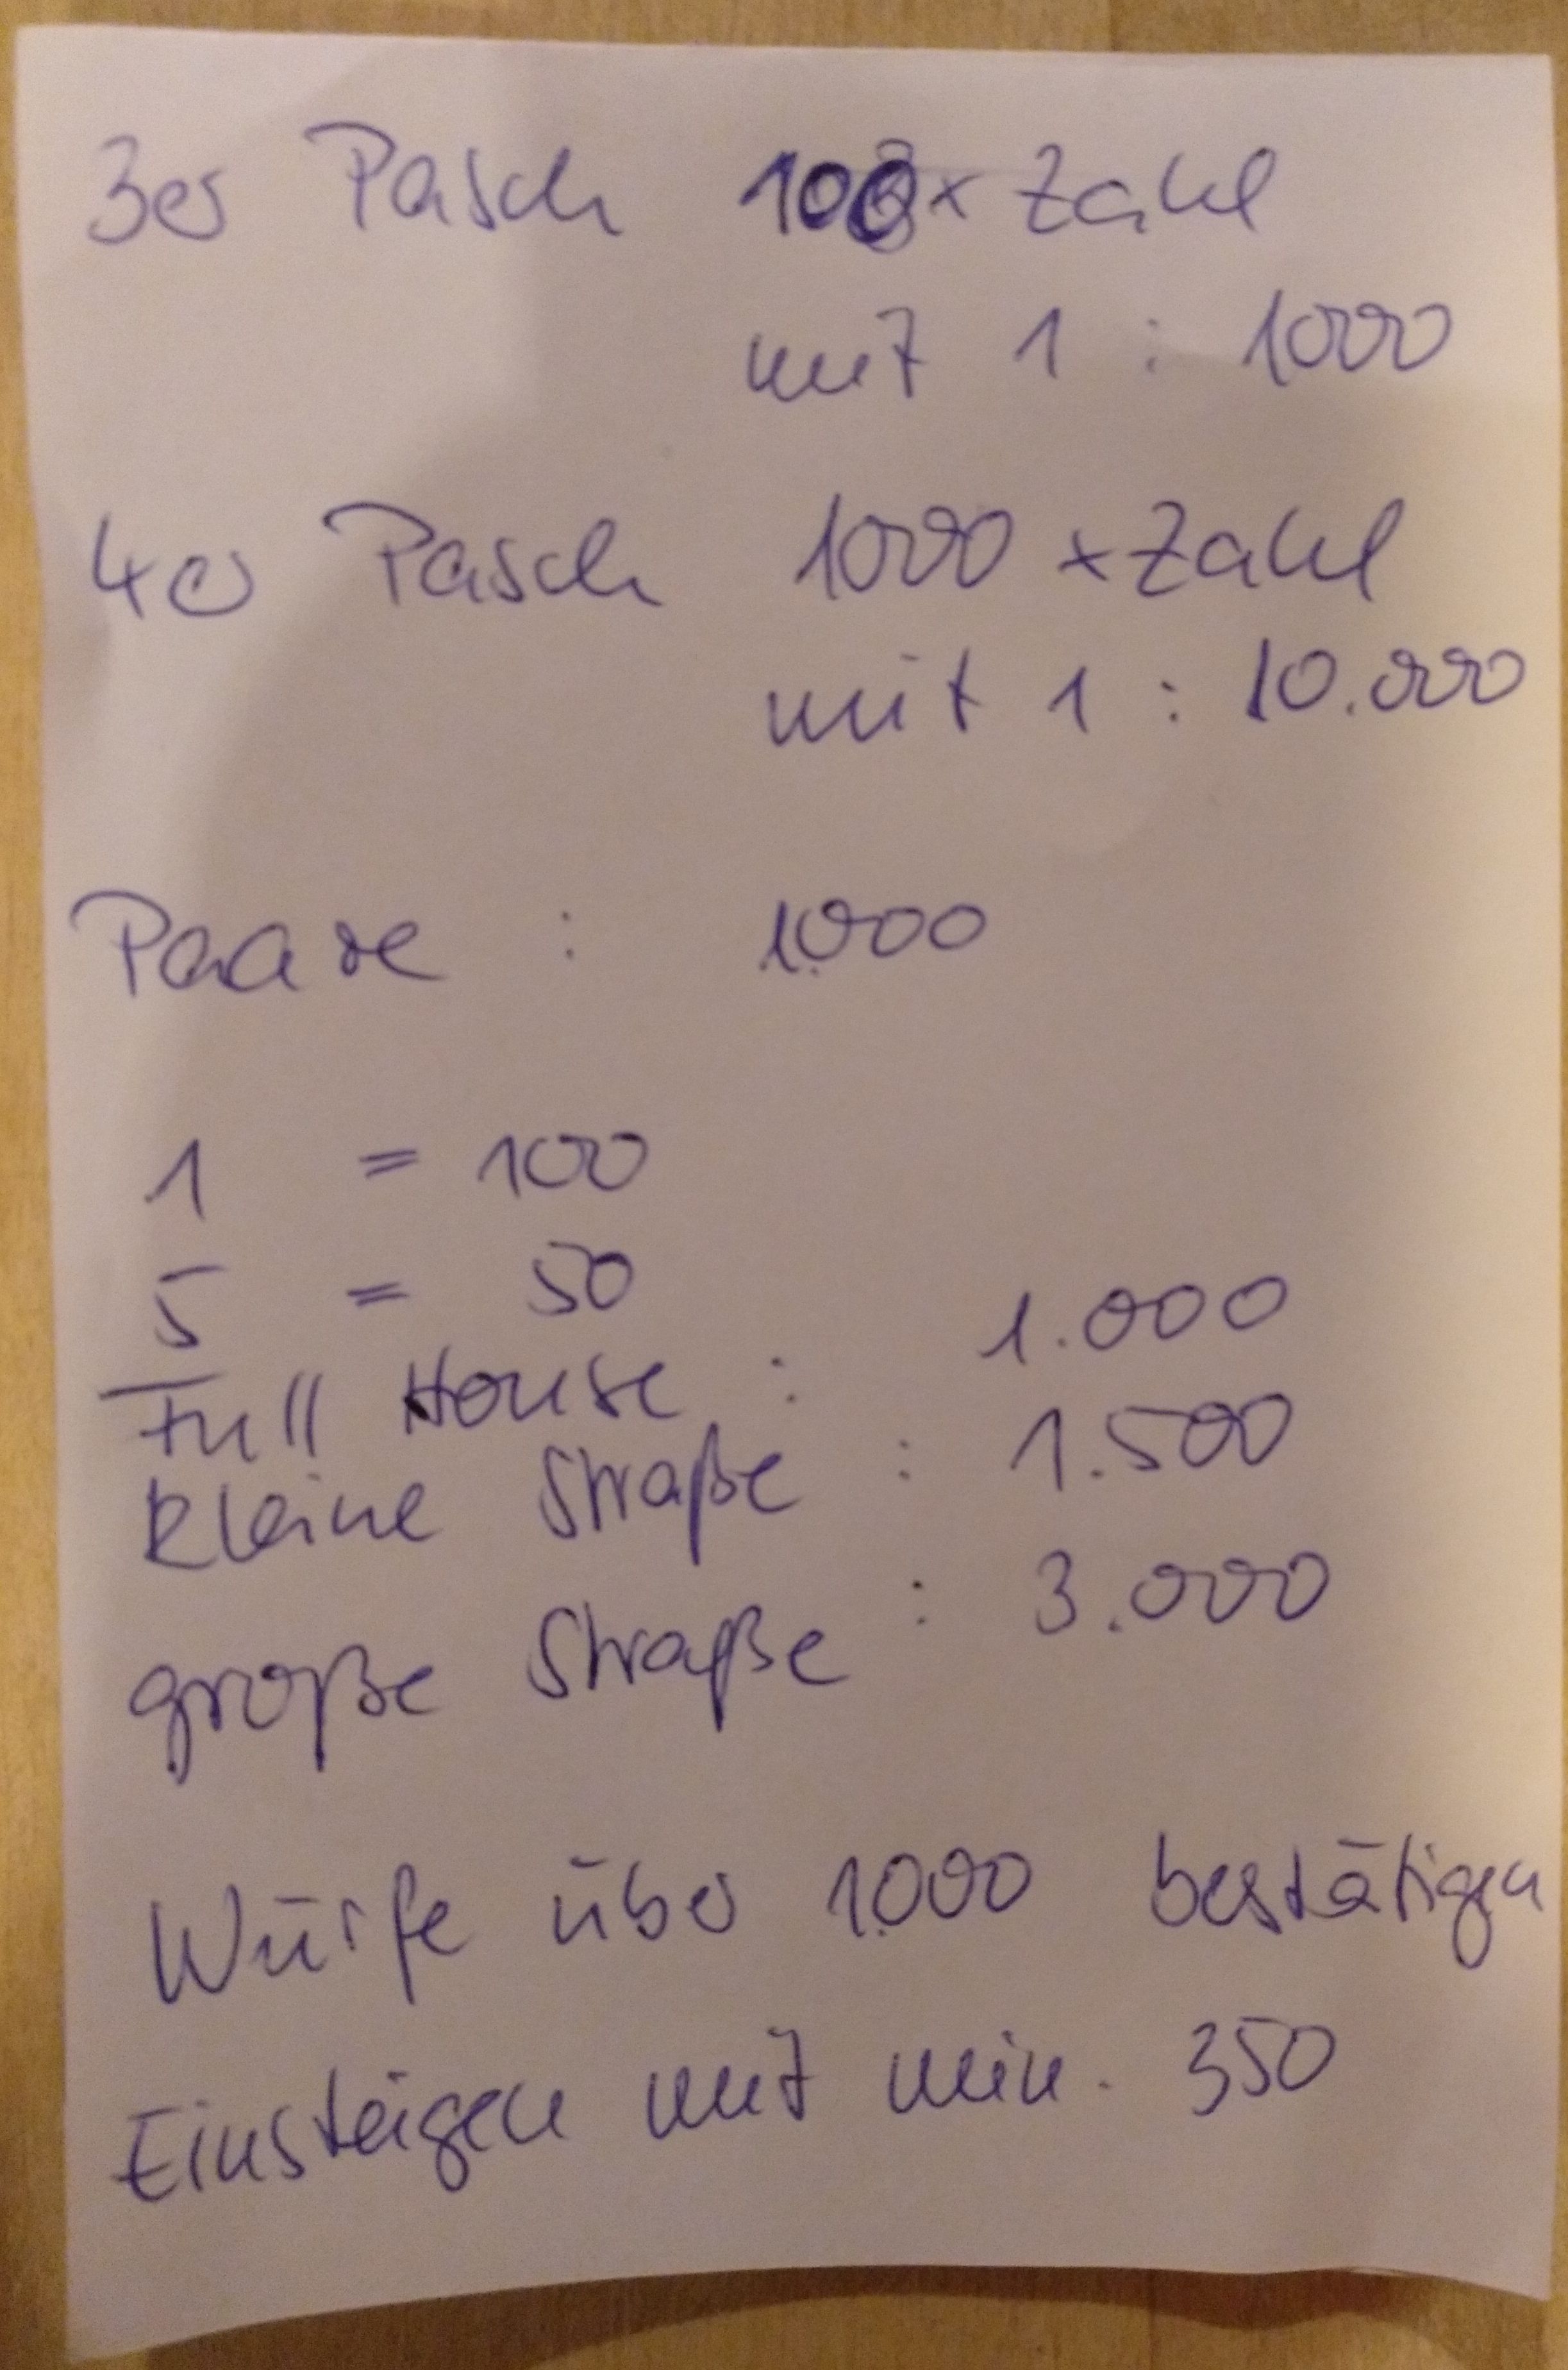 3er Pasch 100 x Zahl
mit 1 : 1000
4er Pasch 1000 x Zahl
mit 1 : 10.000
Paare : 1.000
1 = 100
5 = 50
Full House : 1.000
kleine Straße : 1.500
große Straße : 3.000
Würfe über 1.000 bestätigen
Einsteigen mit min. 350